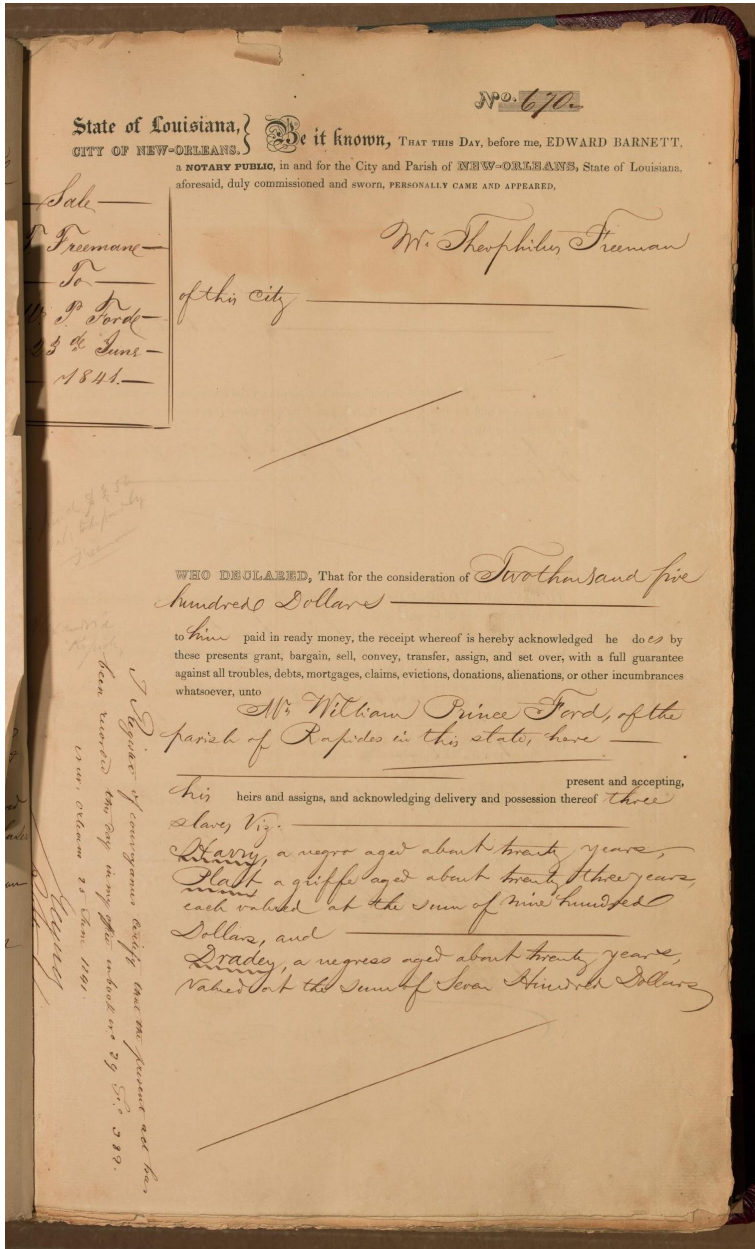 No. 670.
State of Louisiana,
CITY OF NEW-ORLEANS.
Be it known, THAT THIS DAY, before me, EDWARD BARNETT,
a NOTARY PUBLIC, in and for the City and Parish of NEW-ORLEANS, State of Louisiana,
aforesaid, duly commissioned and sworn, PERSONALLY CAME AND APPEARED,
Sale
Freeman
To
P. Ford
23d June
1841.
Mr. Theophilus Freeman
of this City
WHO DECLARED, That for the consideration of Two thousand five
hundred Dollars
to him paid in ready money, the receipt whereof is hereby acknowledged he does by
these presents grant, bargain, sell, convey, transfer, assign, and set over, with a full guarantee
against all troubles, debts, mortgages, claims, evictions, donations, alienations, or other incumbrances
whatsoever, unto
Mr. William Prince Ford, of the
parish of Rapides in this state, here
present and accepting,
his heirs and assigns, and acknowledging delivery and possession thereof three
slaves Viz.
Harry, a negro aged about twenty years,
Plast a griffe aged about twenty three years,
each valued at the sum of nine hundred
Dollars, and
Dradey, a negress aged about twenty years,
Valued at the sum of Seven Hundred Dollars
I Register of conveyances certify that the present act has
been recorded this day in my office in book no 29 Fo 382.
New Orleans 25 June 1841.